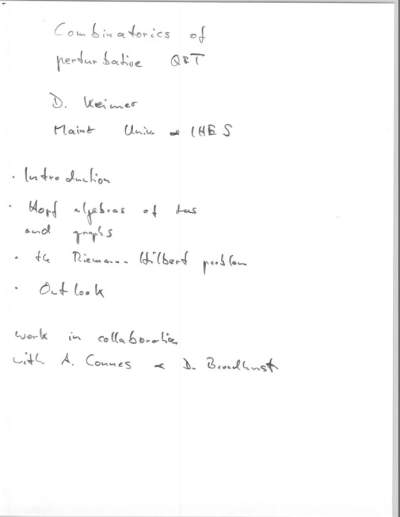 Combinatorics of
perturbative QFT
D. Kreimer
Mainz Univ & IHES
· Introduction
· Hopf algebras of trees
and graphs
· the Riemann-Hilbert problem
· Outlook
work in collaboration
with A. Connes & D. Broadhurst